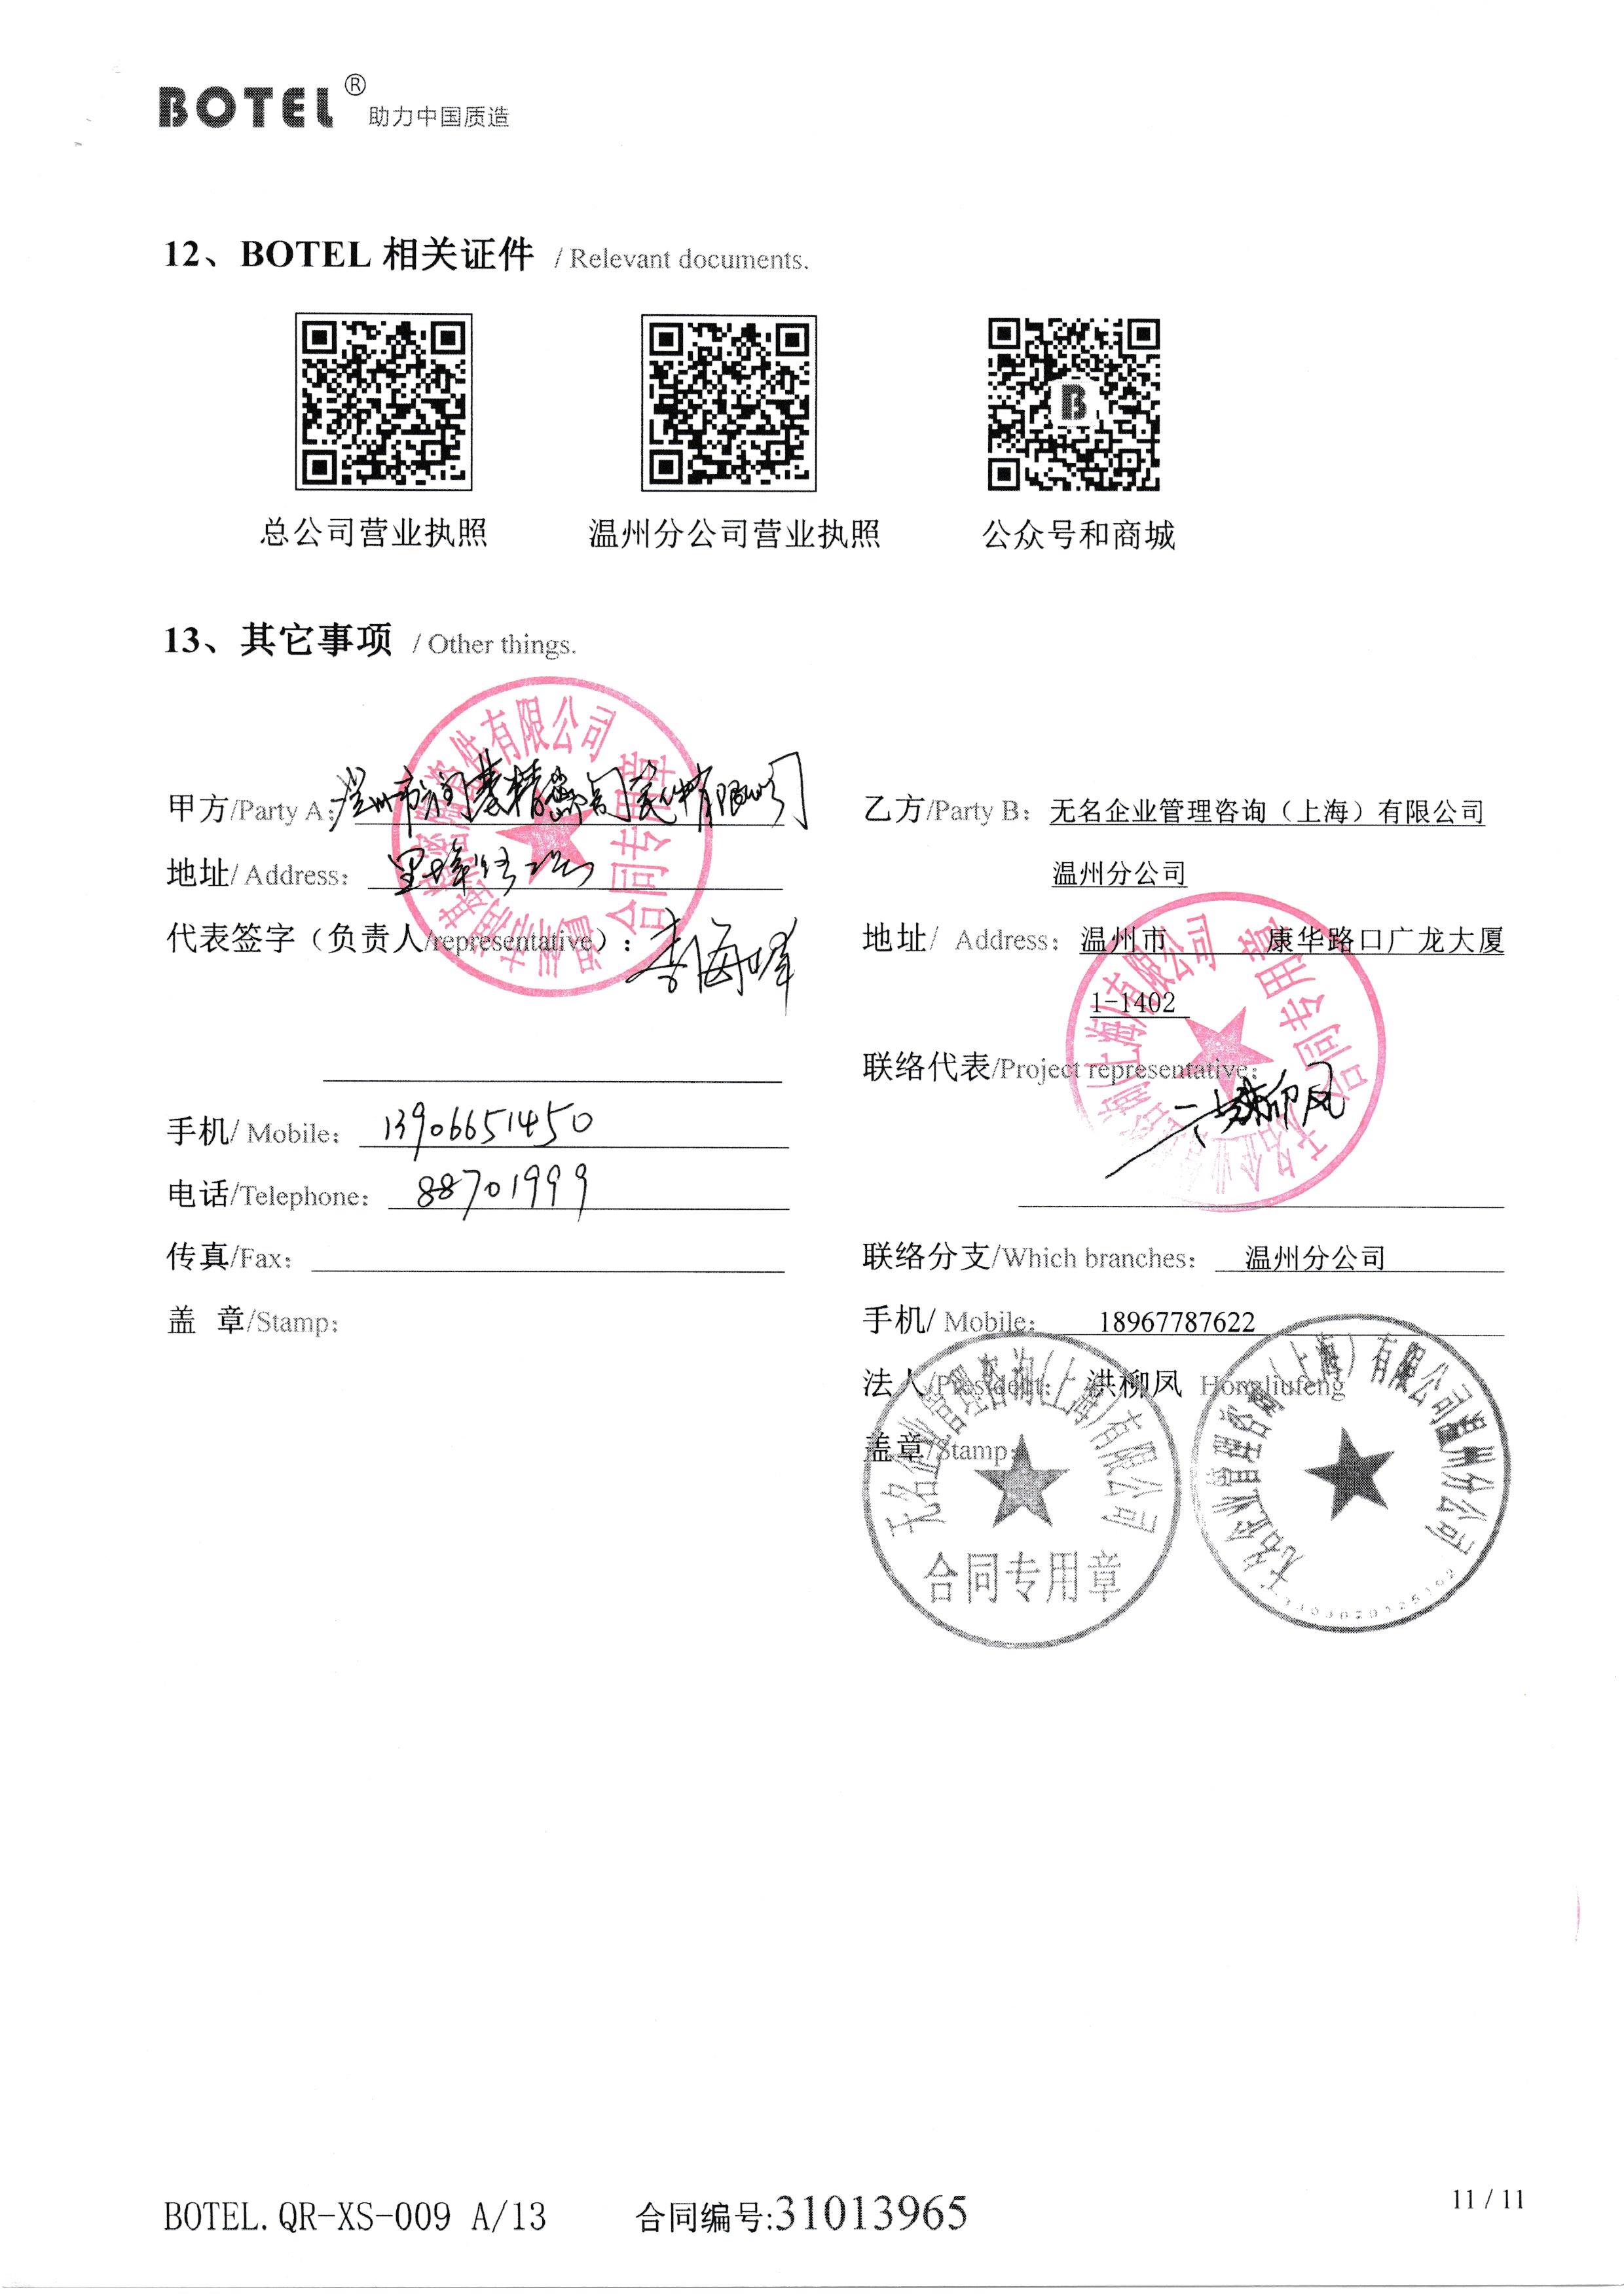 BOTEL® 助力中国质造
12、BOTEL 相关证件 / Relevant documents.
B
总公司营业执照 温州分公司营业执照 公众号和商城
13、其它事项 / Other things.
甲方/Party A: 温州市 精密 有限公司
地址/ Address:
代表签字（负责人/representative）: 李海峰
手机/ Mobile: 13906651450
电话/Telephone: 88701999
传真/Fax:
盖 章/Stamp:
有限公司
合同专用章
乙方/Party B: 无名企业管理咨询（上海）有限公司
温州分公司
地址/ Address: 温州市 康华路口广龙大厦
1-1402
联络代表/Project representative:
洪柳凤
联络分支/Which branches: 温州分公司
手机/ Mobile: 18967787622
法人/President: 洪柳凤 Hongliufeng
盖章/Stamp:
无名企业管理咨询(上海)有限公司
合同专用章
无名企业管理咨询（上海）有限公司温州分公司
BOTEL.QR-XS-009 A/13 合同编号:31013965
11 / 11